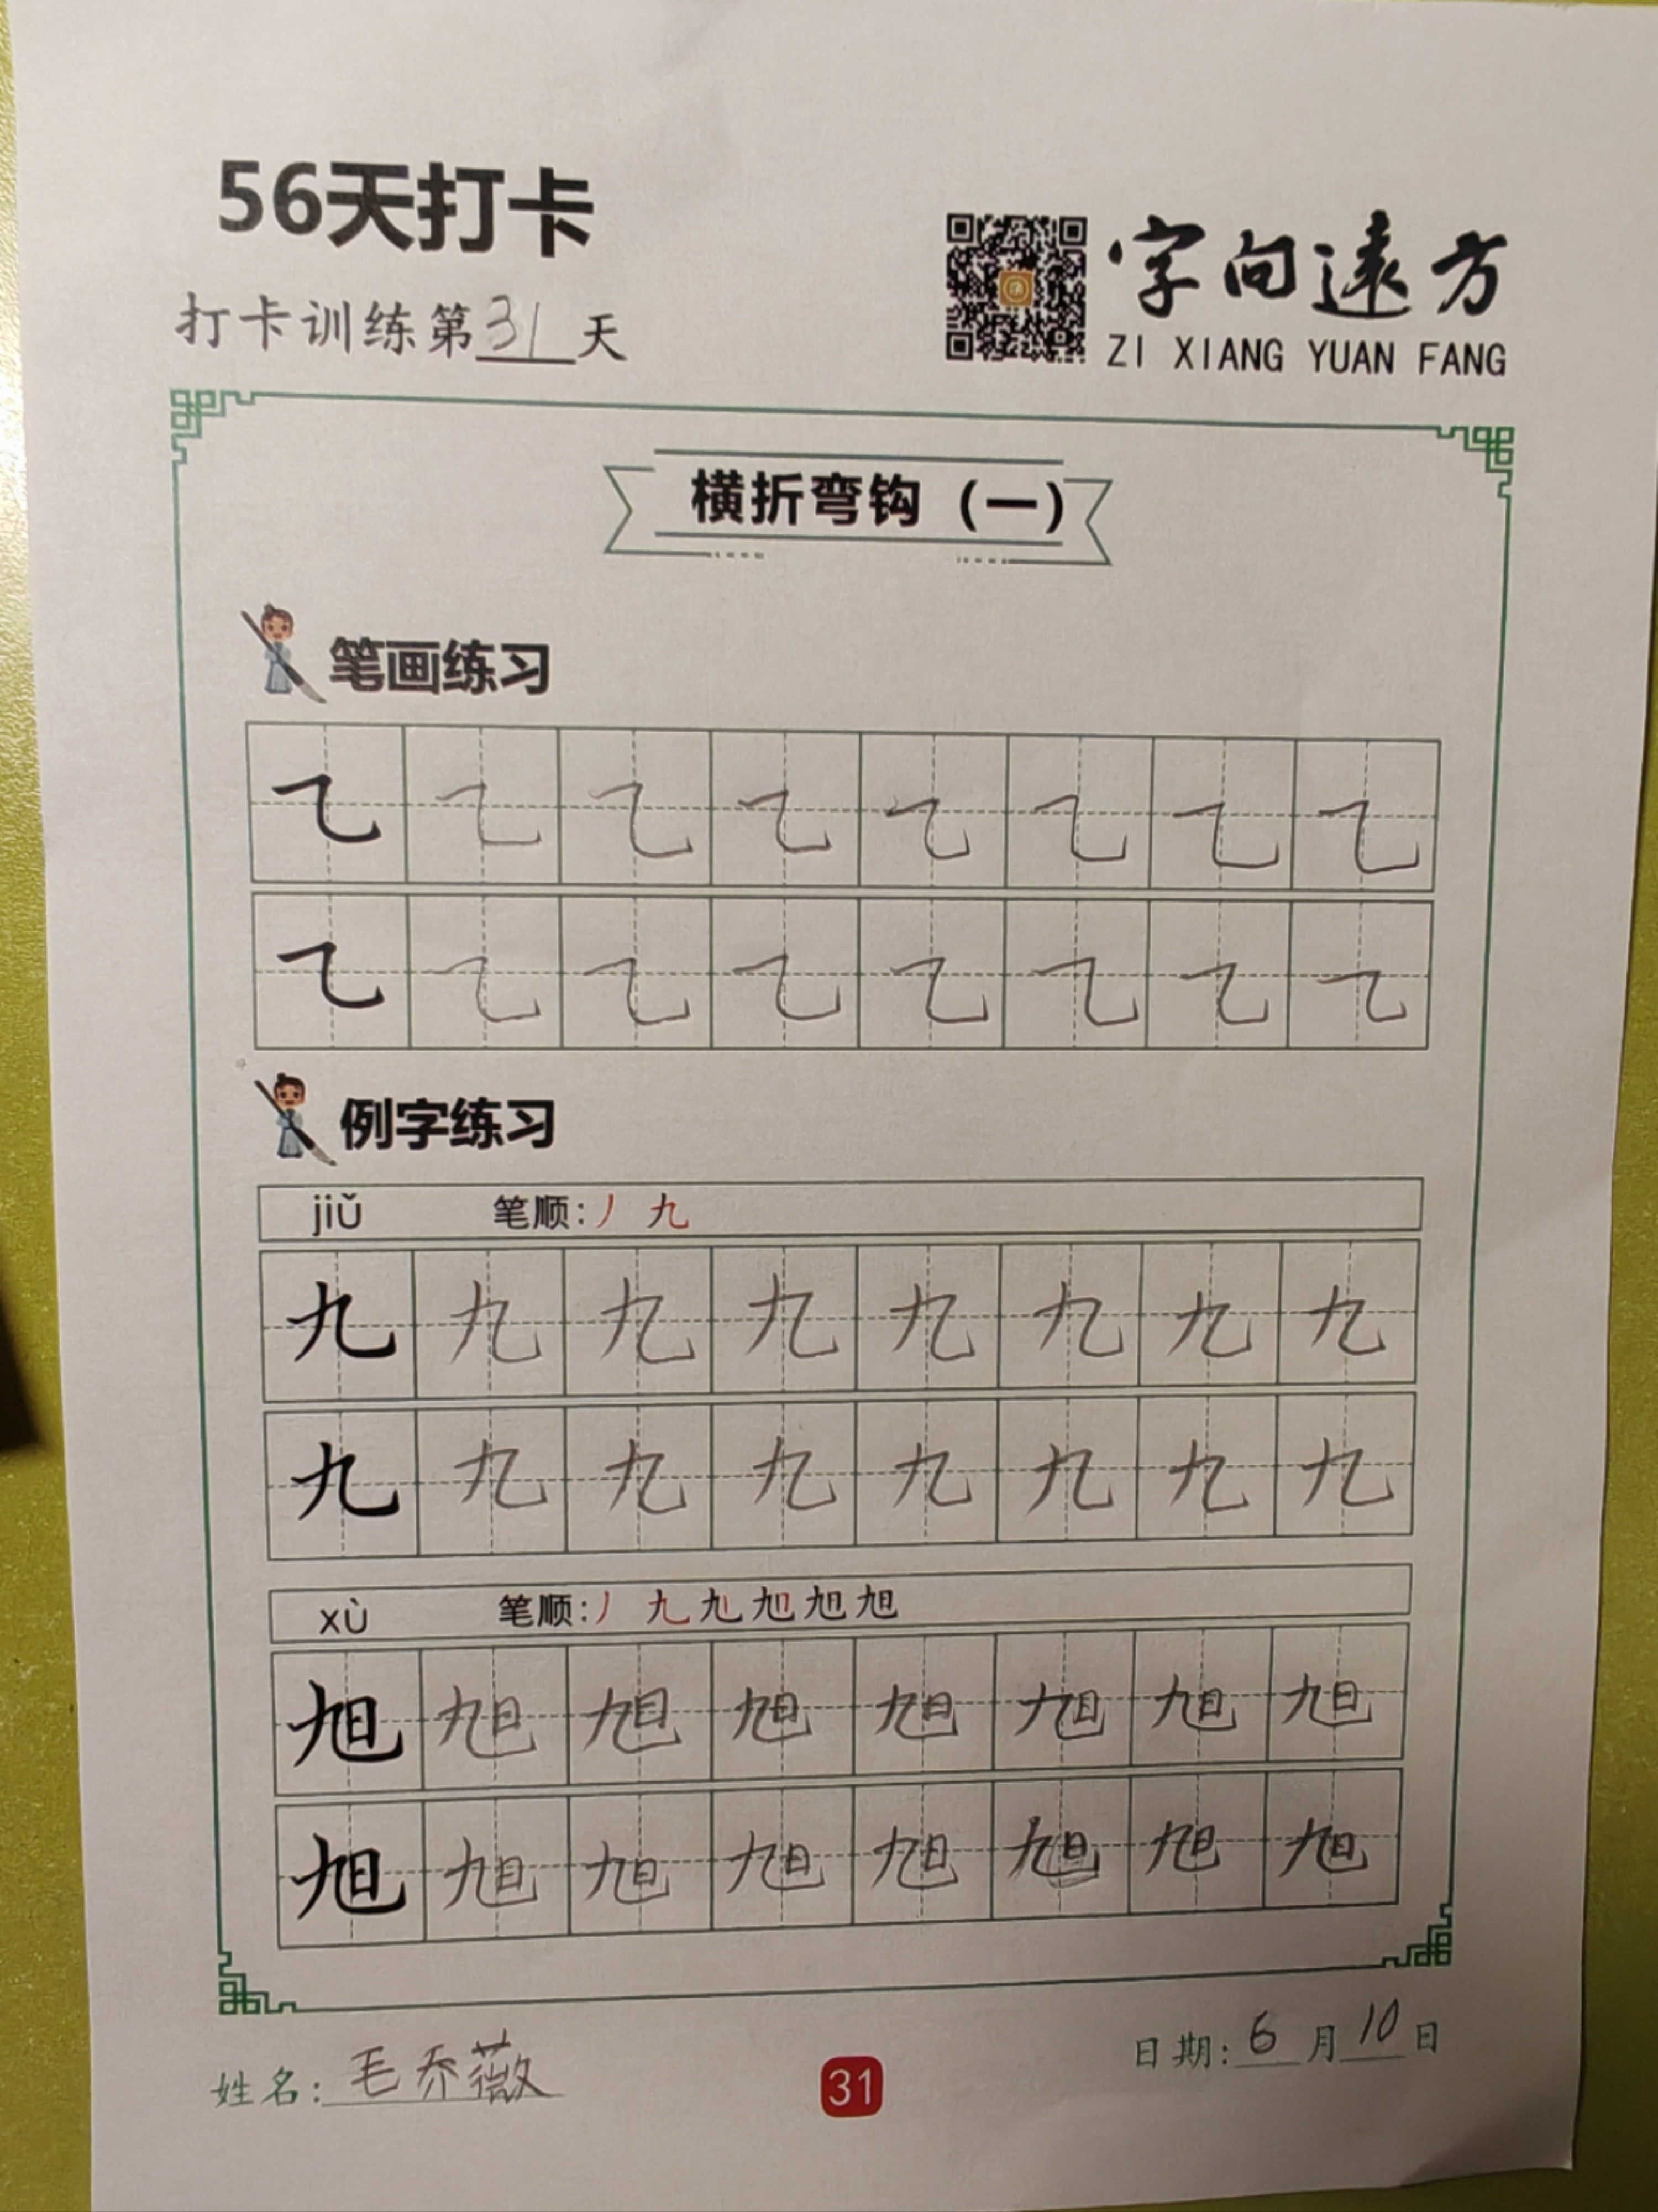 56天打卡
打卡训练第31天
字向遠方
ZI XIANG YUAN FANG
横折弯钩（一）
笔画练习
㇈ ㇈ ㇈ ㇈ ㇈ ㇈ ㇈ ㇈
㇈ ㇈ ㇈ ㇈ ㇈ ㇈ ㇈ ㇈
例字练习
jiǔ 笔顺:丿 九
九 九 九 九 九 九 九 九
九 九 九 九 九 九 九 九
xù 笔顺:丿 九 旭
旭 旭 旭 旭 旭 旭 旭 旭
旭 旭 旭 旭 旭 旭 旭 旭
姓名:毛乔薇
31
日期:6月10日